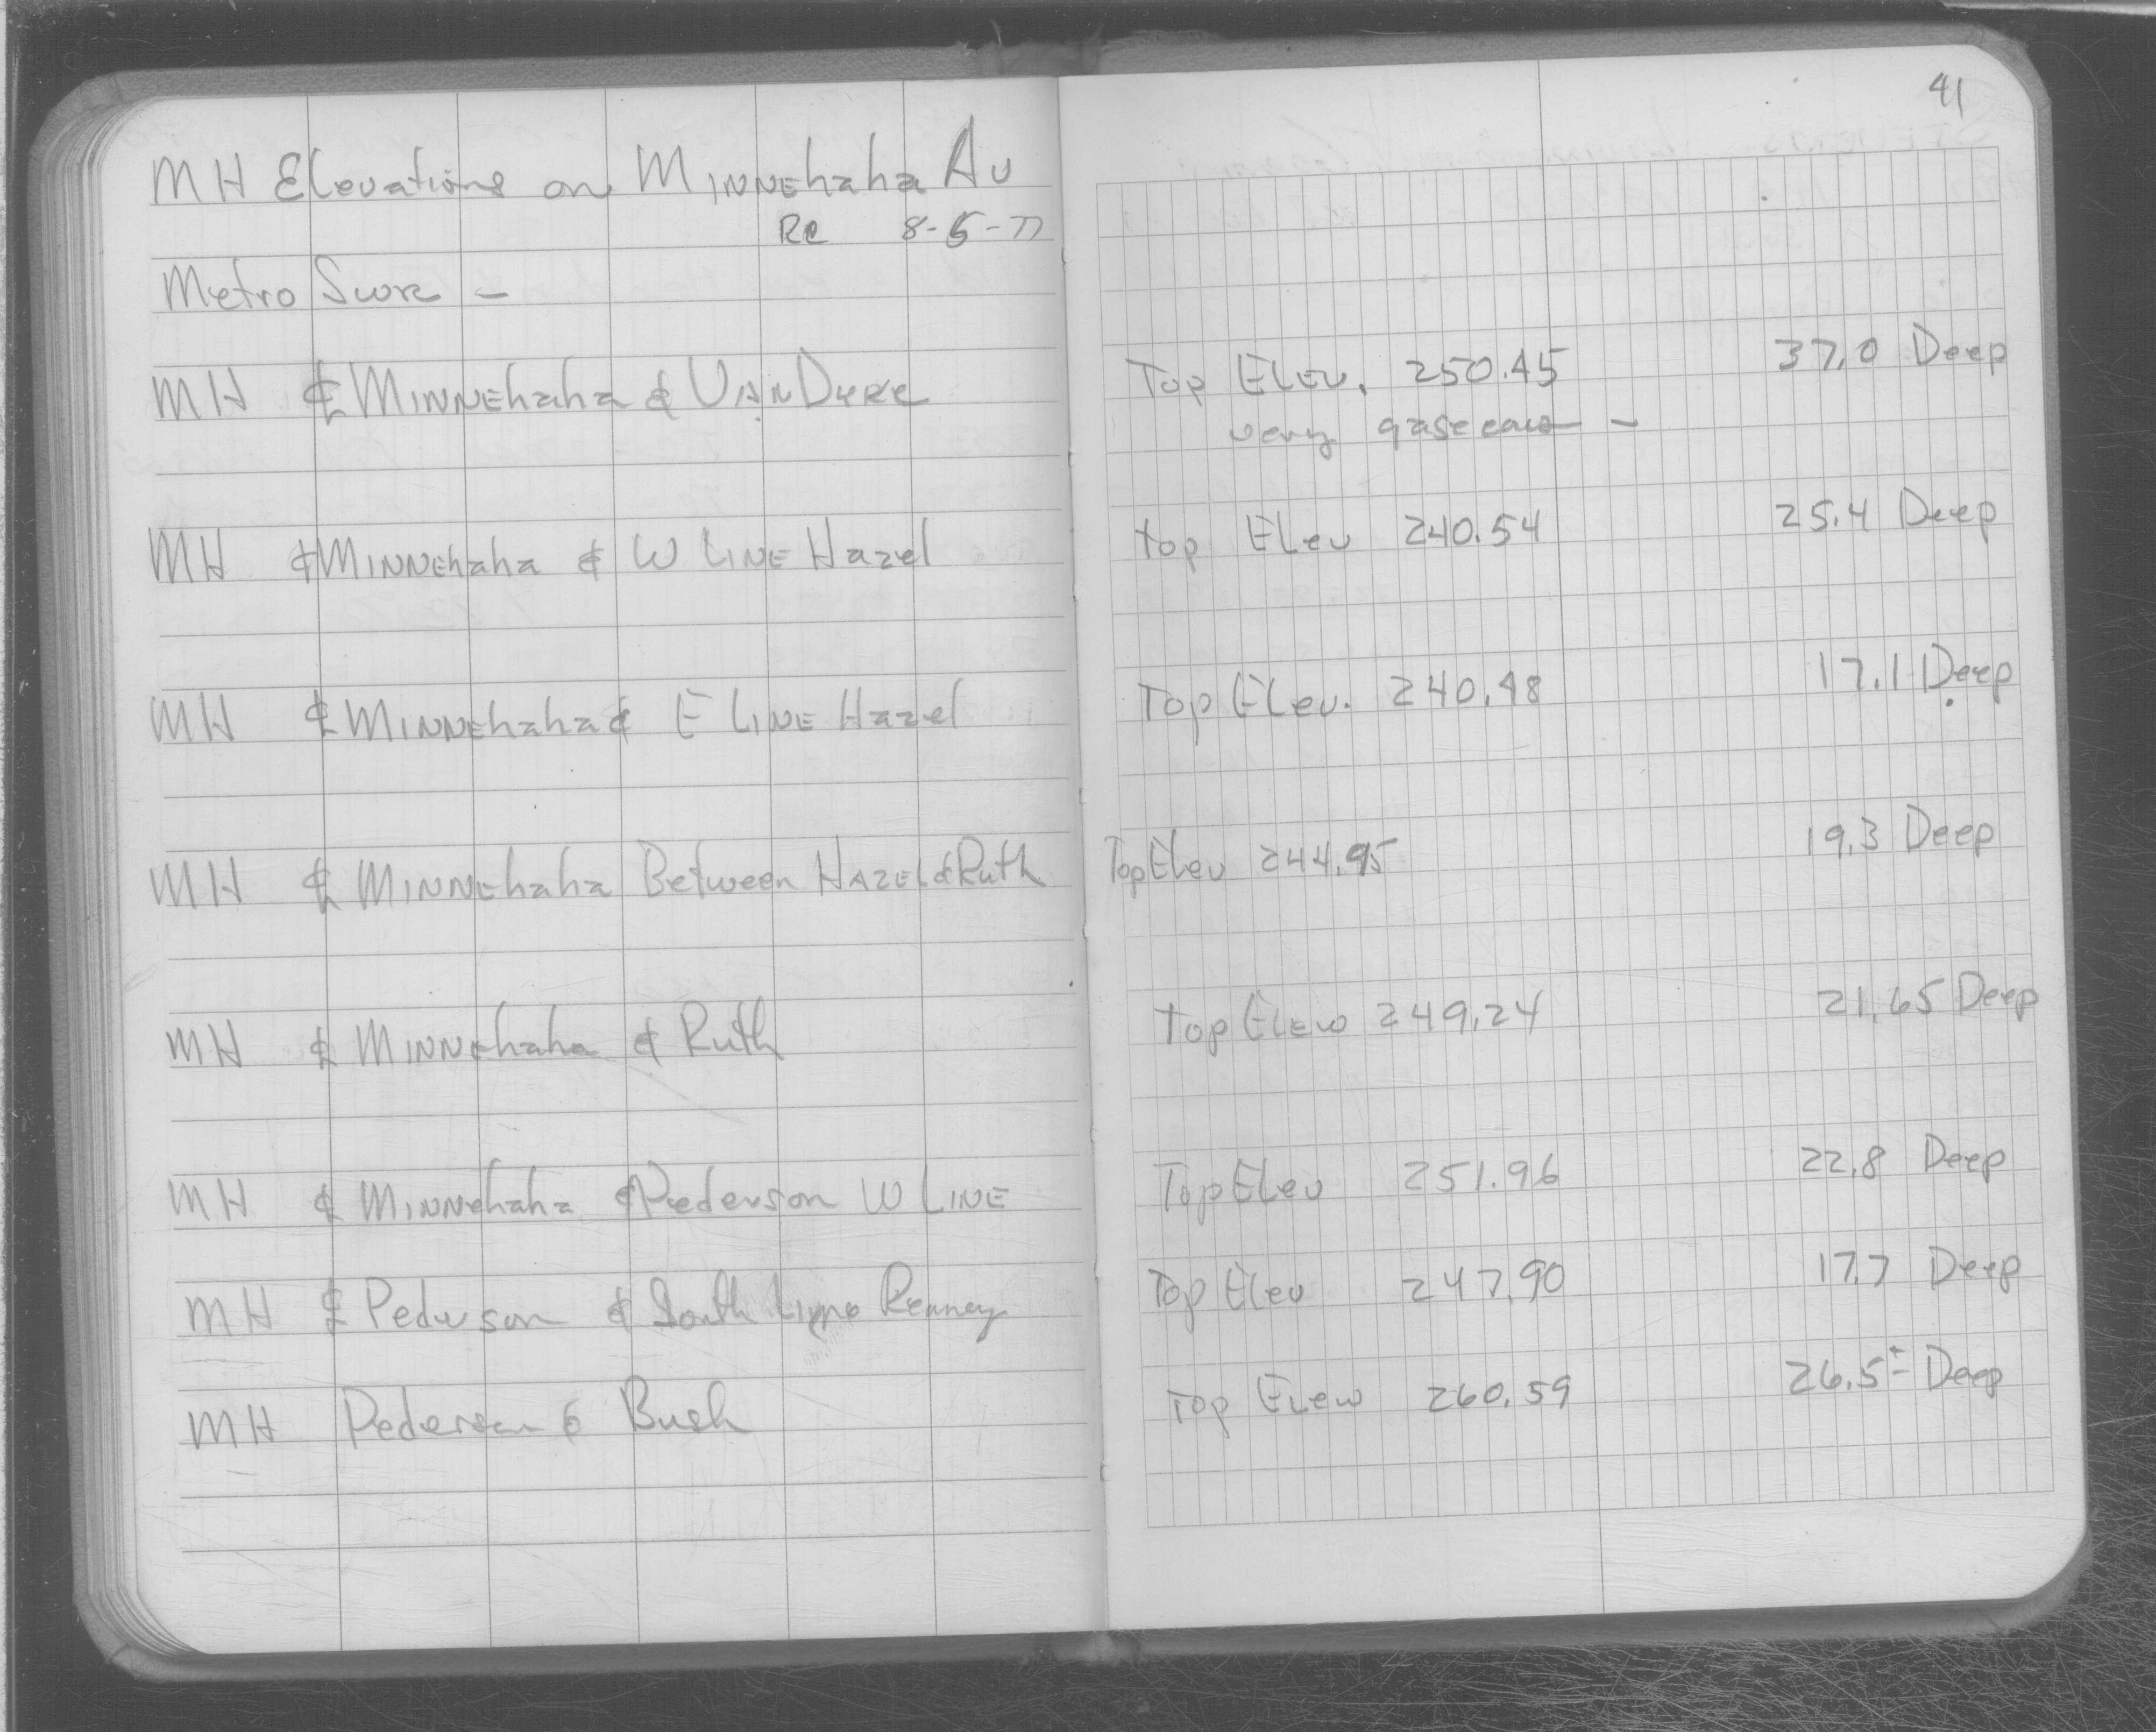 41
MH Elevations on Minnehaha Av
Re 8-5-77
Metro Swre -
MH ℄ Minnehaha & VanDyke Top Elev. 250.45 37.0 Deep
very gaseeous -
MH ℄ Minnehaha & W Line Hazel Top Elev 240.54 25.4 Deep
MH ℄ Minnehaha & E Line Hazel Top Elev. 240.48 17.1 Deep
MH ℄ Minnehaha Between Hazel & Ruth Top Elev 244.95 19.3 Deep
MH ℄ Minnehaha & Ruth Top Elev 249.24 21.65 Deep
MH ℄ Minnehaha & Pederson W Line Top Elev 251.96 22.8 Deep
MH ℄ Pederson & South Line Reaney Top Elev 247.90 17.7 Deep
MH Pederson & Bush Top Elev 260.59 26.5± Deep